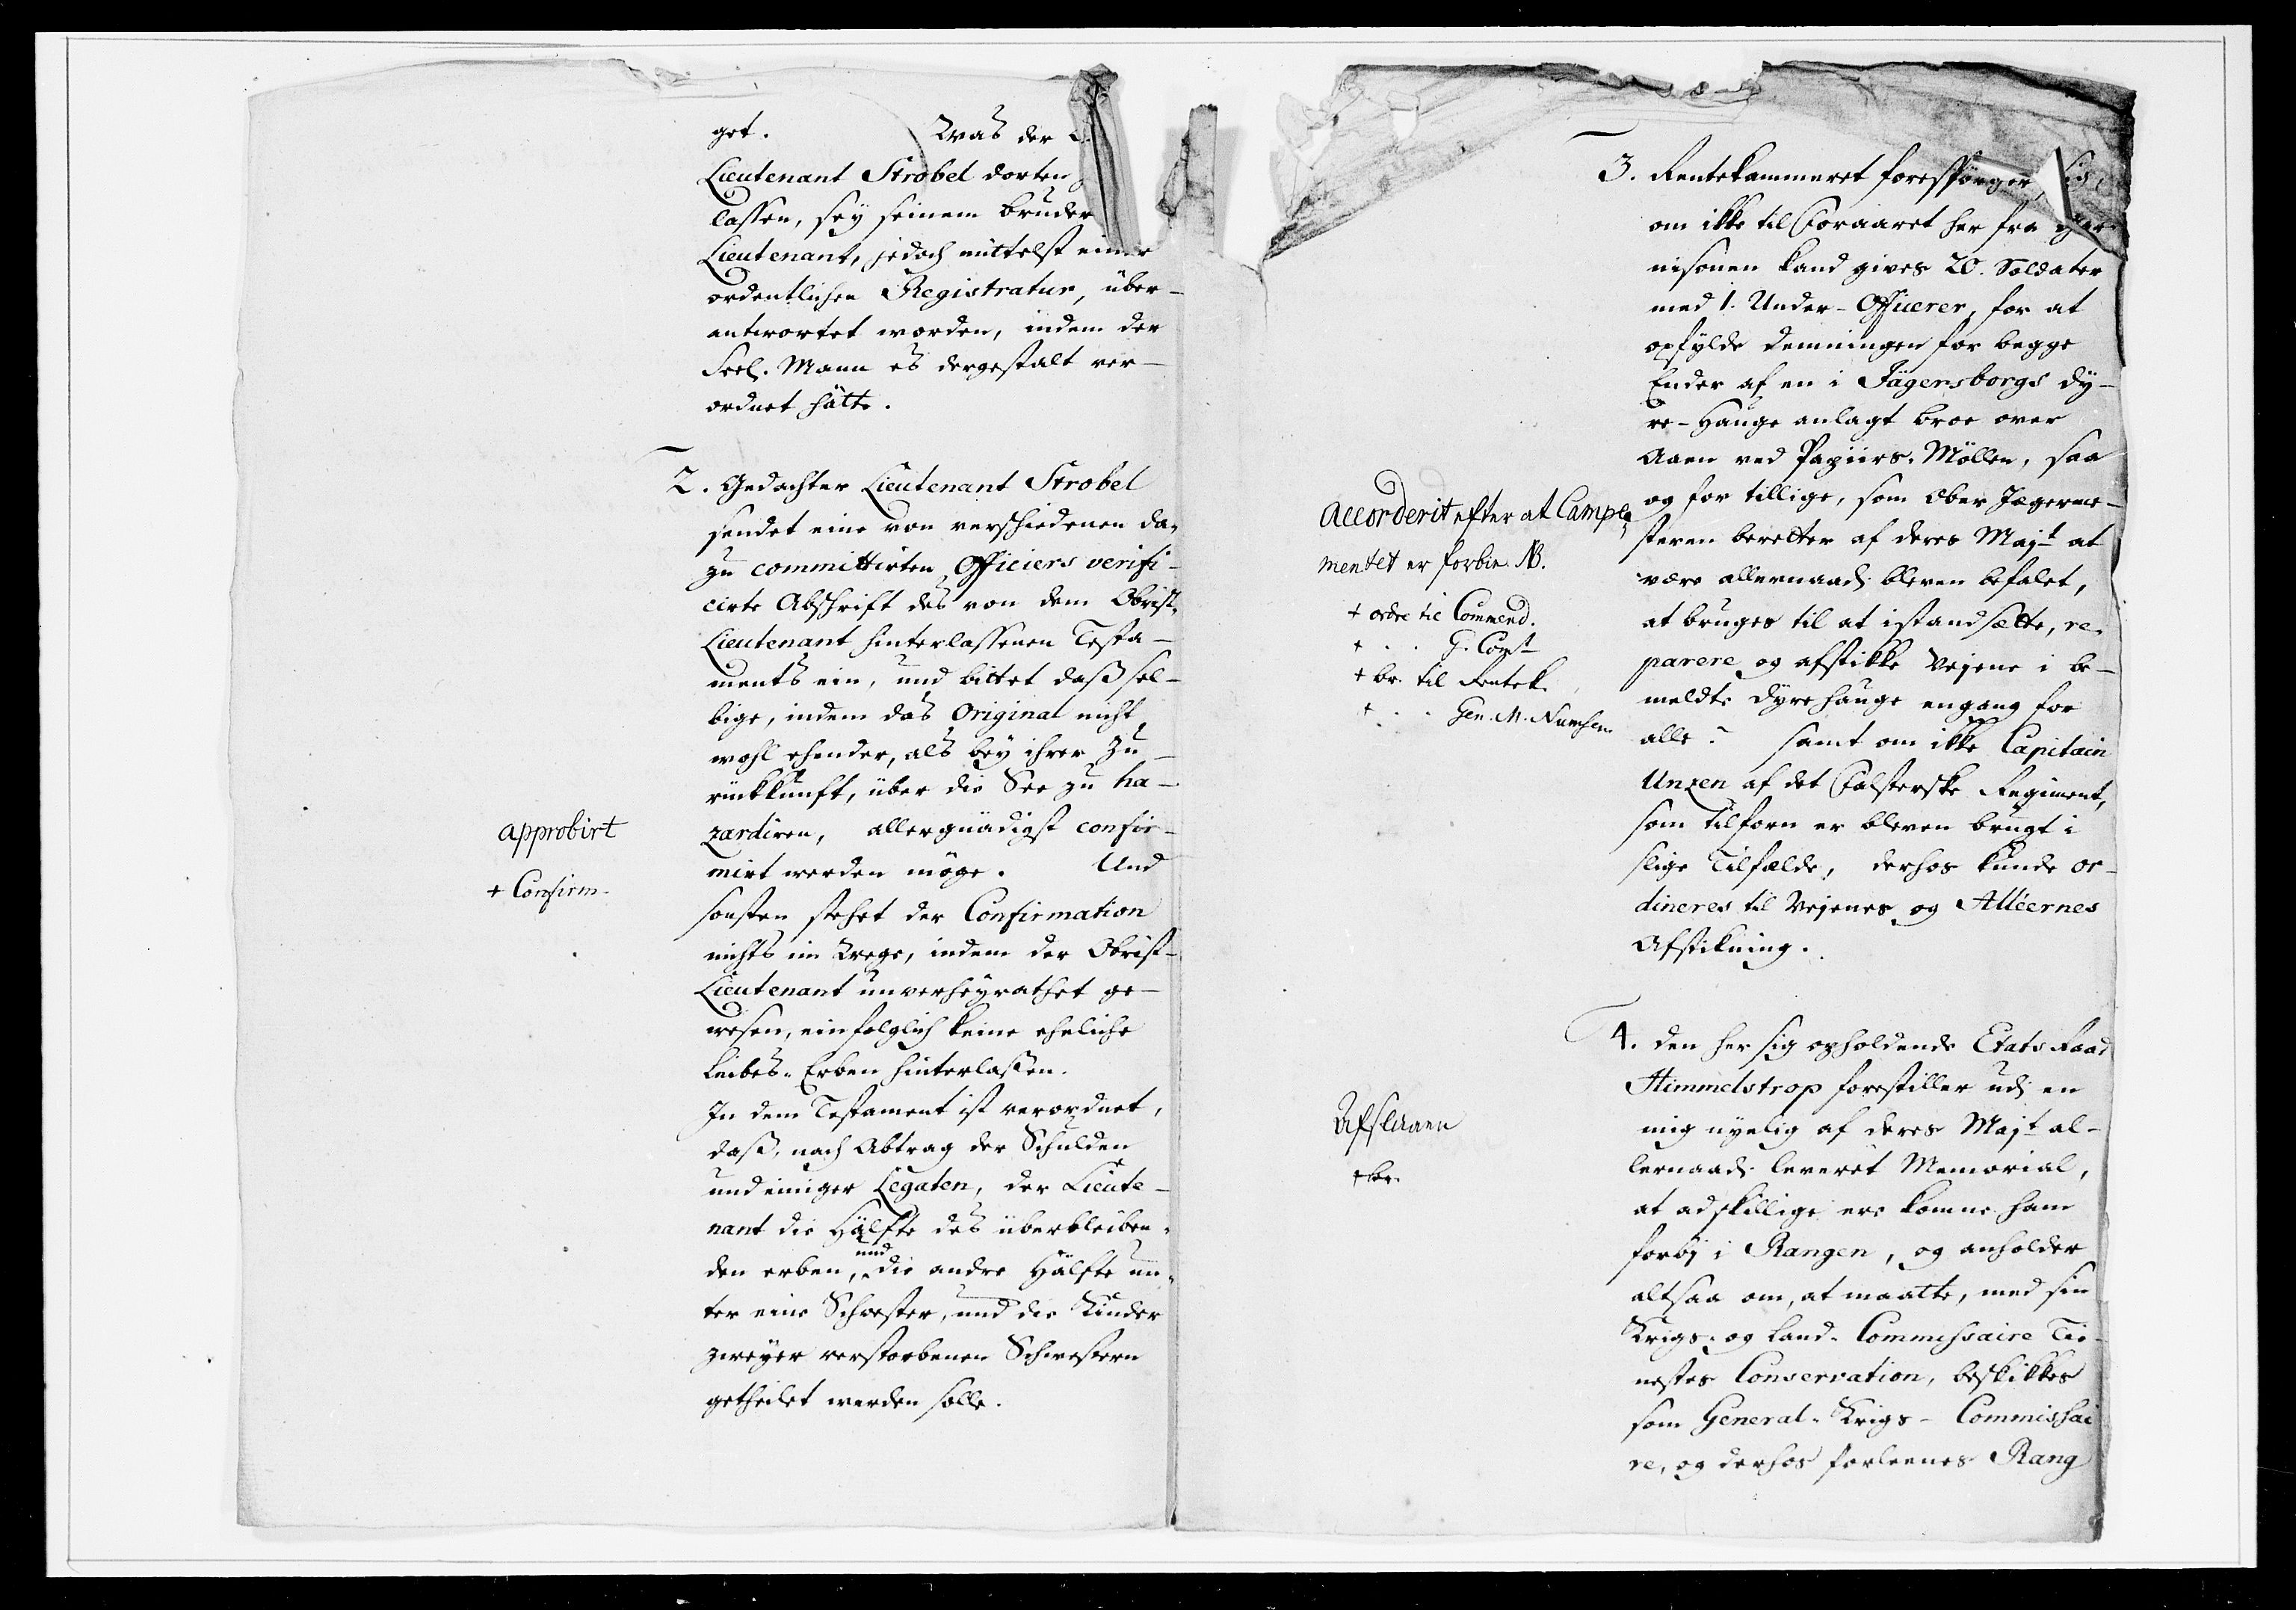 get. Was der
Lieutenant Strobel dorten
lassen, sey seinem bruder
Lieutenant, jedoch mittelst einer
ordentlichen Registratur, über-
antwortet worden, indem der
Seel. Mann es dergestalt ver-
ordnet hätte.
2. Gedachter Lieutenant Strobel
sendet eine von verschiedenen da-
zu committirten Officiers verifi-
cirte Abschrift des von dem Obrist-
Lieutenant hinterlassenen Testa-
ments ein, und bittet daß sel-
bige, indem das Original nicht
wohl ehender, als bey ihrer Zu-
rückkunft, über die See zu ha-
zardiren, allergnädigst confir-
mirt werden möge. Und
sonsten stehet der Confirmation
nichts im Wege, indem der Obrist-
Lieutenant unverheyrathet ge-
wesen, einfolglich keine eheliche
Leibes-Erben hinterlassen.
In dem Testament ist verordnet,
daß, nach Abtrag der Schulden
und einiger Legaten, der Lieute-
nant die Hälfte des überbleiben-
den erben, und die andre Hälfte un-
ter eine Schwester, und die Kinder
zweyer verstorbenen Schwestern
getheilet werden solle.
approbirt
+ Confirm.
3. Rentekammeret forespørger sig,
om ikke til Foraaret her fra Gar-
nisonen kand gives 20. Soldater
med 1. Under-Officerer, for at
opfylde Demningen for begge
Ender af en i Jägersborgs Dy-
re-Hauge anlagt broe over
Aaen ved Papiirs-Möllen, saa
og for tillige, som Ober Jægerme-
steren beretter af deres Majt at
være allernaad: bleven befalet,
at bruges til at istandsætte, re-
parere og afstikke Vejene i be-
meldte Dyrehauge engang for
alle? samt om ikke Capitain
Unzen af det Falsterske Regiment,
som tilforn er bleven brugt i
slige Tilfælde, derhos kunde or-
dineres til Vejenes og Alléernes
Afstikning.
Accorderit efter at Campe-
mentet er forbie. NB.
+ ordre til Commend.
+ . . G. Comt
+ br. til Rentek.
+ . . Gen. M. Numsen
4. Den her sig opholdende Etats Raad
Himmelstrop forestiller udi en
mig nyelig af deres Majt al-
lernaad: leveret Memorial,
at adskillige ere komne ham
forbj i Rangen, og anholder
altsaa om, at maatte, med sin
Krigs- og Land-Commissaire Tie-
nestes Conservation, beskikkes
som General-Krigs-Commissai
re, og derhos forleenes Rang
Afslaaen
+ br.